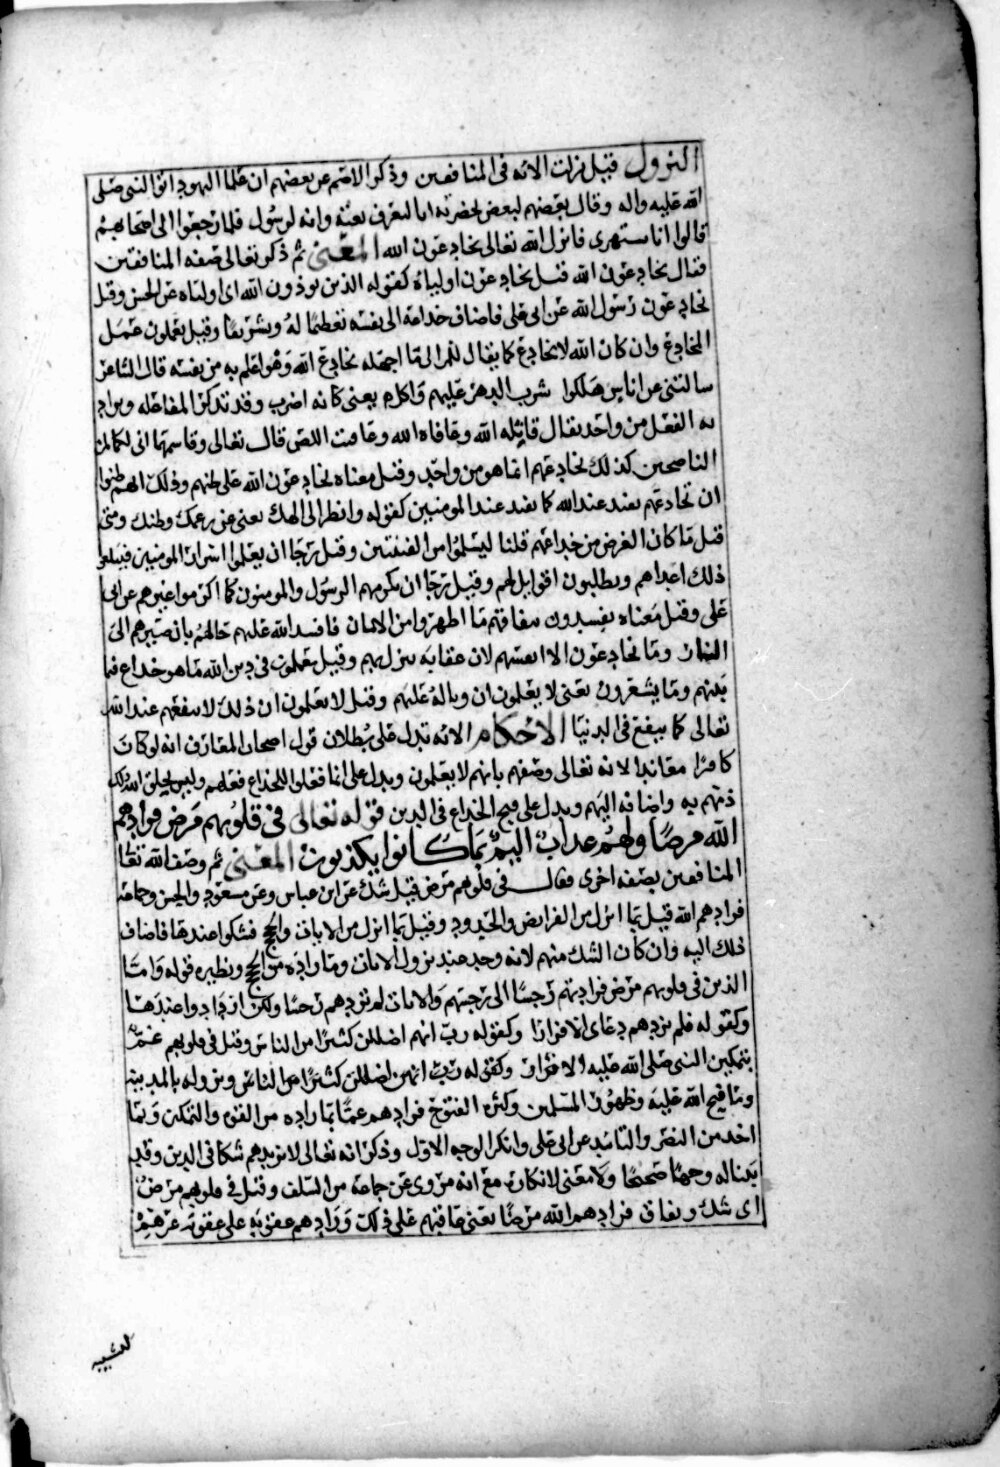 النزول قيل نزلت الآيه في المنافقين وذكر الاصم عن بعضهم ان علما اليهود اتوا النبي صلى
الله عليه واله وقال بعضهم لبعض بحضرته انا لنعرف نعته وانه لرسول فلما رجعوا الى اصحابهم
قالوا انا مستهزى فانزل الله تعالى يخادعون الله المعنى ثم ذكر تعالى صفه المنافقين
فقال يخادعون الله قيل يخادعون اولياه كقوله الذين يوذون الله اى اولياه عن الحسن وقيل
يخادعون رسول الله عن ابى على فاضاف خداعه الى نفسه تعظيما له وتشريفا وقيل يعملون عمل
المخادع وان كان الله لا يخادع كما يقال لمراى ما اجهله يخادع الله وهو اعلم به من نفسه قال الشاعر
سالتنى عن اناس هلكوا شرب الدهر عليهم واكل يعنى كانه اضرب وقد تذكر المفاعله ويراد
به الفعل من واحد يقال قاتله الله وعافاه الله وعاقبت اللص قال تعالى وقاسمهما انى لكما لمن
الناصحين كذلك يخادعهم انما هو من واحد وقيل معناه يخادعون الله على ظنهم وذلك انهم ظنوا
ان تخادعهم يفيد عند الله كما يفيد عند المومنين كقوله وانظر الى الهك يعنى عن زعمك وظنك ومتى
قيل ما كان الغرض من خداعهم قلنا ليسلموا من وقيل رجا ان يعلموا اسرار المومنين فيبلغوا
ذلك اعداهم ويطلبون لهم وقيل رجا ان يكرمهم الرسول والمومنون كما اكرموا غيرهم عن ابى
على وقيل معناه يفسدون بنفاقهم ما اظهروا من الايمان فافسد الله عليهم حالهم بان صيرهم الى
النار وما يخادعون الا انفسهم لان عقابه ينزل بهم وقيل يعملون في دين الله ما هو خداع فيما
بينهم وما يشعرون يعنى لا يعلمون ان وباله عليهم وقيل لا يعلمون ان ذلك لا ينفعهم عند الله
تعالى كما ينفع في الدنيا الاحكام الآيه تدل على بطلان قول اصحاب المعارف انه لو كان
كافرا معاندا لانه تعالى وصفهم بانهم لا يعلمون ويدل على انما فعلوا الخداع فعلهم وليس بخلق الله لذلك
ذمهم به واضافه اليهم ويدل على قبح الخداع في الدين قوله تعالى في قلوبهم مرض فزادهم
الله مرضا ولهم عذاب اليم بما كانوا يكذبون المعنى ثم وصف الله تعالى
المنافقين بصفه اخرى فقال في قلوبهم مرض قيل شك عن ابن عباس وعن مسعود والحسن وجماعه
فزادهم الله قيل بما انزل من الفرايض والحدود وقيل بما انزل من الايات والحجج فشكوا عندها فاضاف
ذلك اليه وان كان الشك منهم لانه وجد عند نزول الايات وما زاده من الحجج ونظيره قوله واما
الذين في قلوبهم مرض فزادتهم رجسا الى رجسهم والايات لم تزدهم رجسا ولكن ازدادوا عندها
وكقوله فلم يزدهم دعاى الا فرارا وكقوله رب انهم اضللن كثيرا من الناس وقيل في قلوبهم غم
بتمكين النبى صلى الله عليه وكقوله رب انهن اضللن كثيرا من الناس ونزوله بالمدينه
وما فتح الله عليه وظهور المسلمين وكثره الفتوح فزادهم غما بما زاده من القوه والتمكن وبما
اخذ من النصر والتاييد عن ابى على وانكر الوجه الاول وذكر انه تعالى لا يزيدهم شكا في الدين وقد
بينا له وجها صحيحا ولا معنى لانكاره مع انه مروى عن جماعه من السلف وقيل في قلوبهم مرض
اى شك ونفاق فزادهم الله مرضا يعنى عاقبهم على ذلك وزادهم عقوبه على عقوبه